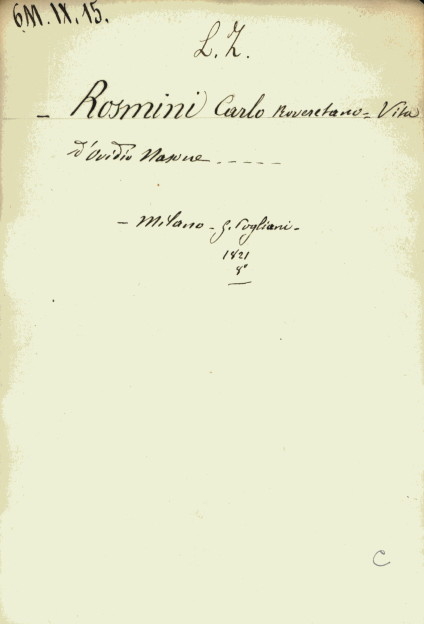 6M.IX.15.
L. Z.
- Rosmini Carlo Roveretano = Vita
d'Ovidio Nasone - - - - -
- Milano - G. Pogliani -
1821
8°
C